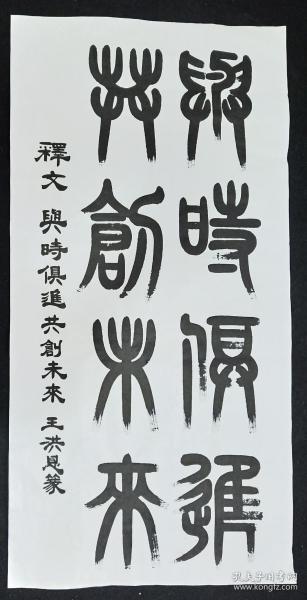 與時俱進
共創未來
釋文 與時俱進共創未來 王洪恩篆
孔夫子旧书网
www.kongfz.com